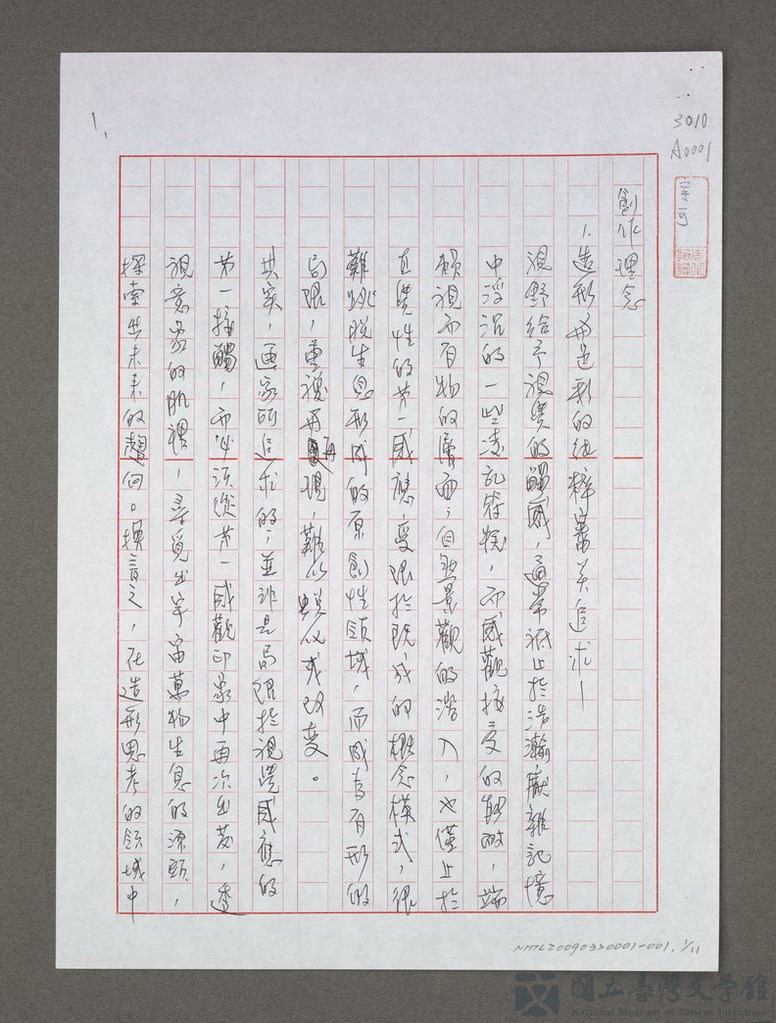 3010
A0001
1.
創作理念
1. 造形再造形的純粹審美追求—
視野給予視覺的觸感，通常祇止於浩瀚龐雜記憶
中浮沉的一些凌亂符號，而感觀接受的觸鬚，端
賴視而有物的層面；自然景觀的潛入，也僅止於
直覺性的第一感應，受限於既成的概念模式，很
難跳脫生息形成的原創性領域，而成為有形的
局限，重複再再現，難以蛻化或改變。
其實，畫家所追求的，並非是局限於視覺感應的
第一接觸，而必須從第一感觀印象中再次出發，透
視意象的肌裡，尋覓出宇宙萬物生息的源頭，
探索出未來的趨向。換言之，在造形思考的領域中
NMTL20090330001-001, 1/11
國立臺灣文學館
National Museum of Taiwan Literature